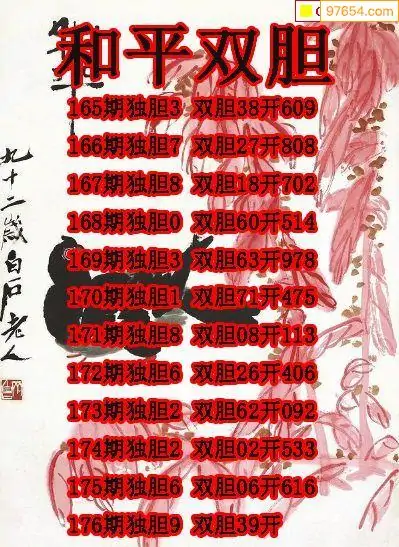 97654.com
和平双胆
165期独胆3 双胆38开609
166期独胆7 双胆27开808
167期独胆8 双胆18开702
168期独胆0 双胆60开514
169期独胆3 双胆63开978
170期独胆1 双胆71开475
171期独胆8 双胆08开113
172期独胆6 双胆26开406
173期独胆2 双胆62开092
174期独胆2 双胆02开533
175期独胆6 双胆06开616
176期独胆9 双胆39开
九十二岁白石老人